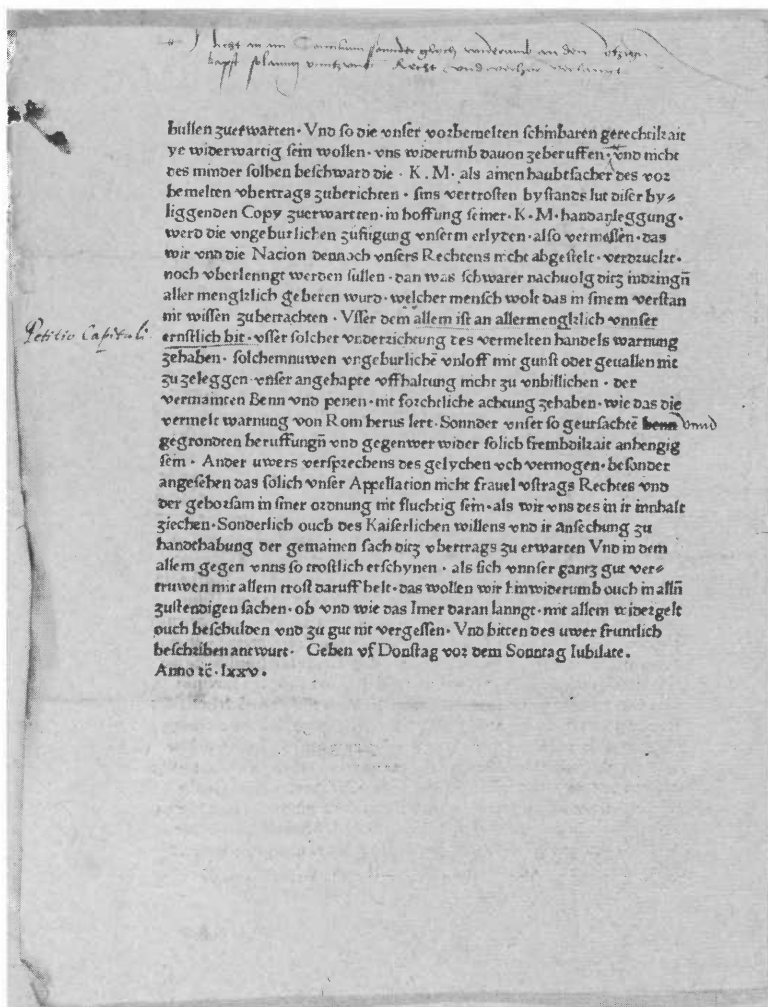 hullen zuerwarten· Vnd so die vnser vorbemelten schinbaren gerechtikait
ye widerwartig sein wollen· vns widerumb dauon zeberuffen· vnd nicht
des minder solben beschward die· K. M· als ainen haubtsacher des vor
bemelten vbertrags zuberichten· sins vertrosten bystands lut diser by⸗
liggenden Copy zuerwartten· in hoffung seiner· K· M· handanleggung·
werd die vngeburlichen zufügung vnserm erlyden· also vermessen· das
wir vnd die Nacion dennoch vnsers Rechtens nicht abgestelt· verdruckt·
noch vberlenngt werden sullen· dan was schwarer nachuolg ditz indzingñ
aller mengklich geberen wurd· welcher mensch wolt das in sinem verstan
nit wissen zubetrachten· Vsser dem allem ist an allermengklich vnnser
Petitio Capituli
ernstlich bit· vsser solcher vnderzichtung des vermelten handels warnung
zehaben· solchemnuwen vngeburlichẽ vnloff mit gunst oder geuallen nit
zu zeleggen· vnser angehapte vffhaltung nicht zu vnbillichen· der
vermainten Benn vnd penen· nit forchtliche achtung zehaben· wie das die
vermelt warnung von Rom herus lert· Sonnder vnser so geursachtẽ benn vnnd
gegrondten beruffungñ vnd gegenwer wider solich frembdikait anhengig
sein· Ander uwers versprechens des gelychen och vermogen· besonder
angesehen das solich vnser Appellation nicht frauel vstrags Rechtes vnd
der gehorsam in siner ordnung nit fluchtig sein· als wir vns des in ir innhalt
ziechen· Sonderlich ouch des Kaiserlichen willens vnd ir ansechung zu
handthabung der gemainen sach ditz vbertrags zu erwarten Vnd in dem
allem gegen vnns so trostlich erschynen· als sich vnnser gantz gut ver⸗
truwen mit allem trost daruff helt· das wollen wir hinwiderumb ouch in allñ
zustendigen sachen· ob vnd wie das Imer daran lanngt· mit allem widergelt
ouch beschulden vnd zu gut nit vergessen· Vnd bitten des uwer fruntlich
beschriben antwurt· Geben vf Donstag vor dem Sonntag Iubilate.
Anno ꝛc̃· lxxv.